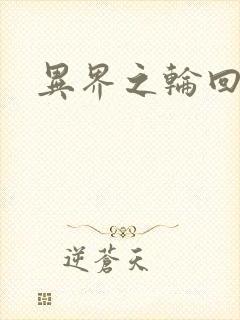 異界之輪回
逆蒼天